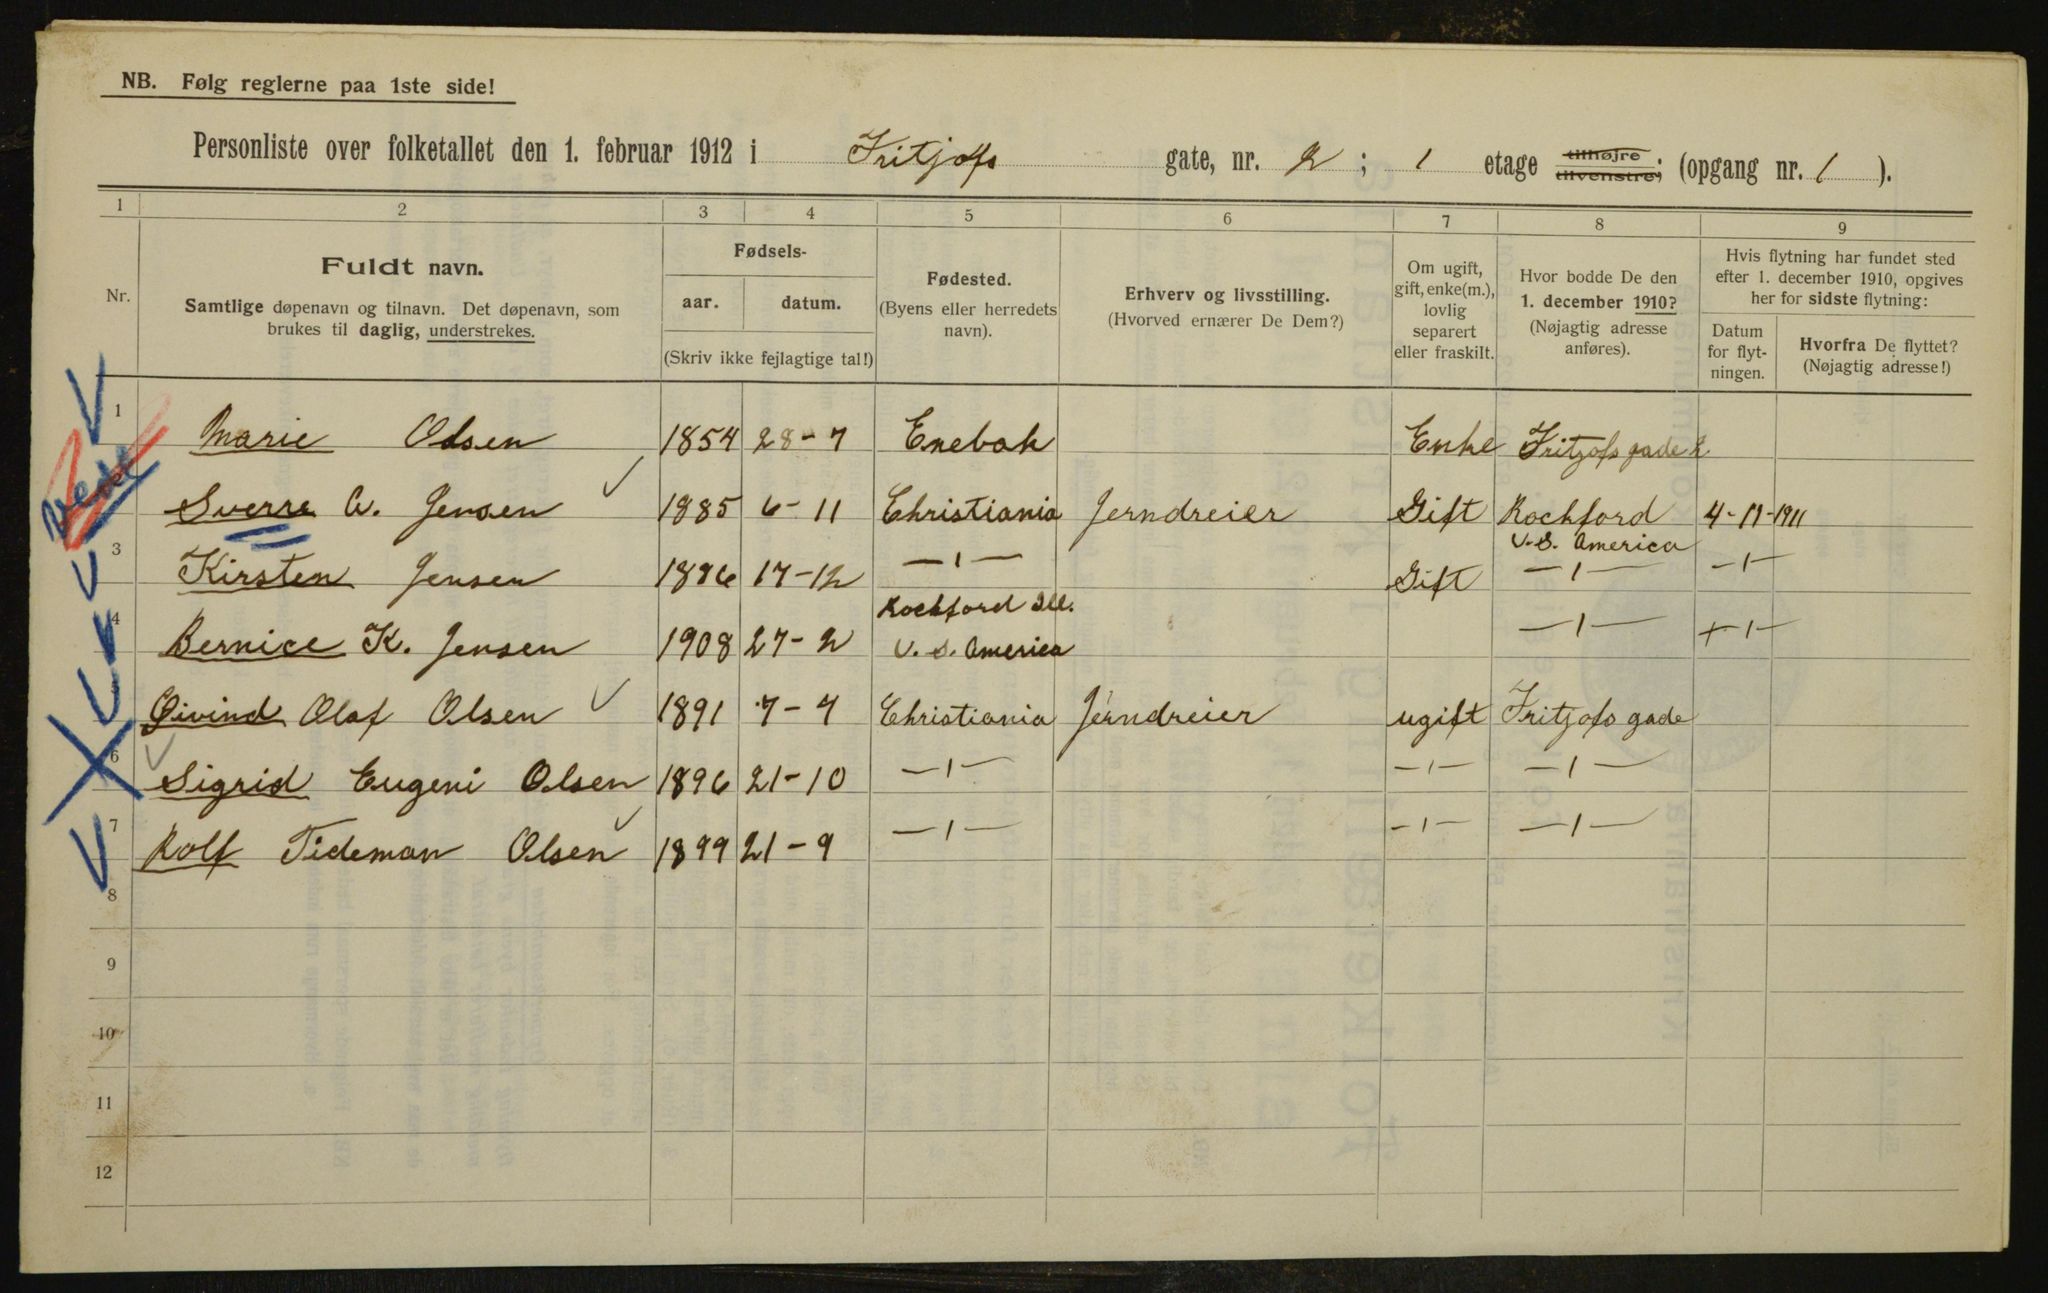 NB. Følg reglerne paa 1ste side!
Personliste over folketallet den 1. februar 1912 i Fritjofs gate, nr. 2 ; 1 etage tilhøjre tilvenstre; (opgang nr. 1 ).
1 2 3 4 5 6 7 8 9
Nr.
Fuldt navn.
Samtlige døpenavn og tilnavn. Det døpenavn, som
brukes til daglig, understrekes.
Fødsels-
aar. datum.
(Skriv ikke fejlagtige tal!)
Fødested.
(Byens eller herredets
navn).
Erhverv og livsstilling.
(Hvorved ernærer De Dem?)
Om ugift,
gift, enke(m.),
lovlig
separert
eller fraskilt.
Hvor bodde De den
1. december 1910?
(Nøjagtig adresse
anføres).
Hvis flytning har fundet sted
efter 1. december 1910, opgives
her for sidste flytning:
Datum
for flyt-
ningen.
Hvorfra De flyttet?
(Nøjagtig adresse!)
1 Marie Olsen 1854 28-7 Enebak Enke Fritjofs gade 2.
Sverre A. Jensen 1885 6-11 Christiania Jerndreier Gift Rockford 4-11-1911
U.S. America
3 Kirsten Jensen 1886 17-12 —1— Gift —1— —1—
Rockford Ill.
4 Bernice K. Jensen 1908 27-2 U.S. America —1— —1—
Øivind Olaf Olsen 1891 7-7 Christiania Jerndreier ugift Fritjofs gade
6 Sigrid Eugeni Olsen 1896 21-10 —1— —1— —1—
7 Rolf Tideman Olsen 1899 21-9 —1— —1— —1—
8
9
10
11
12